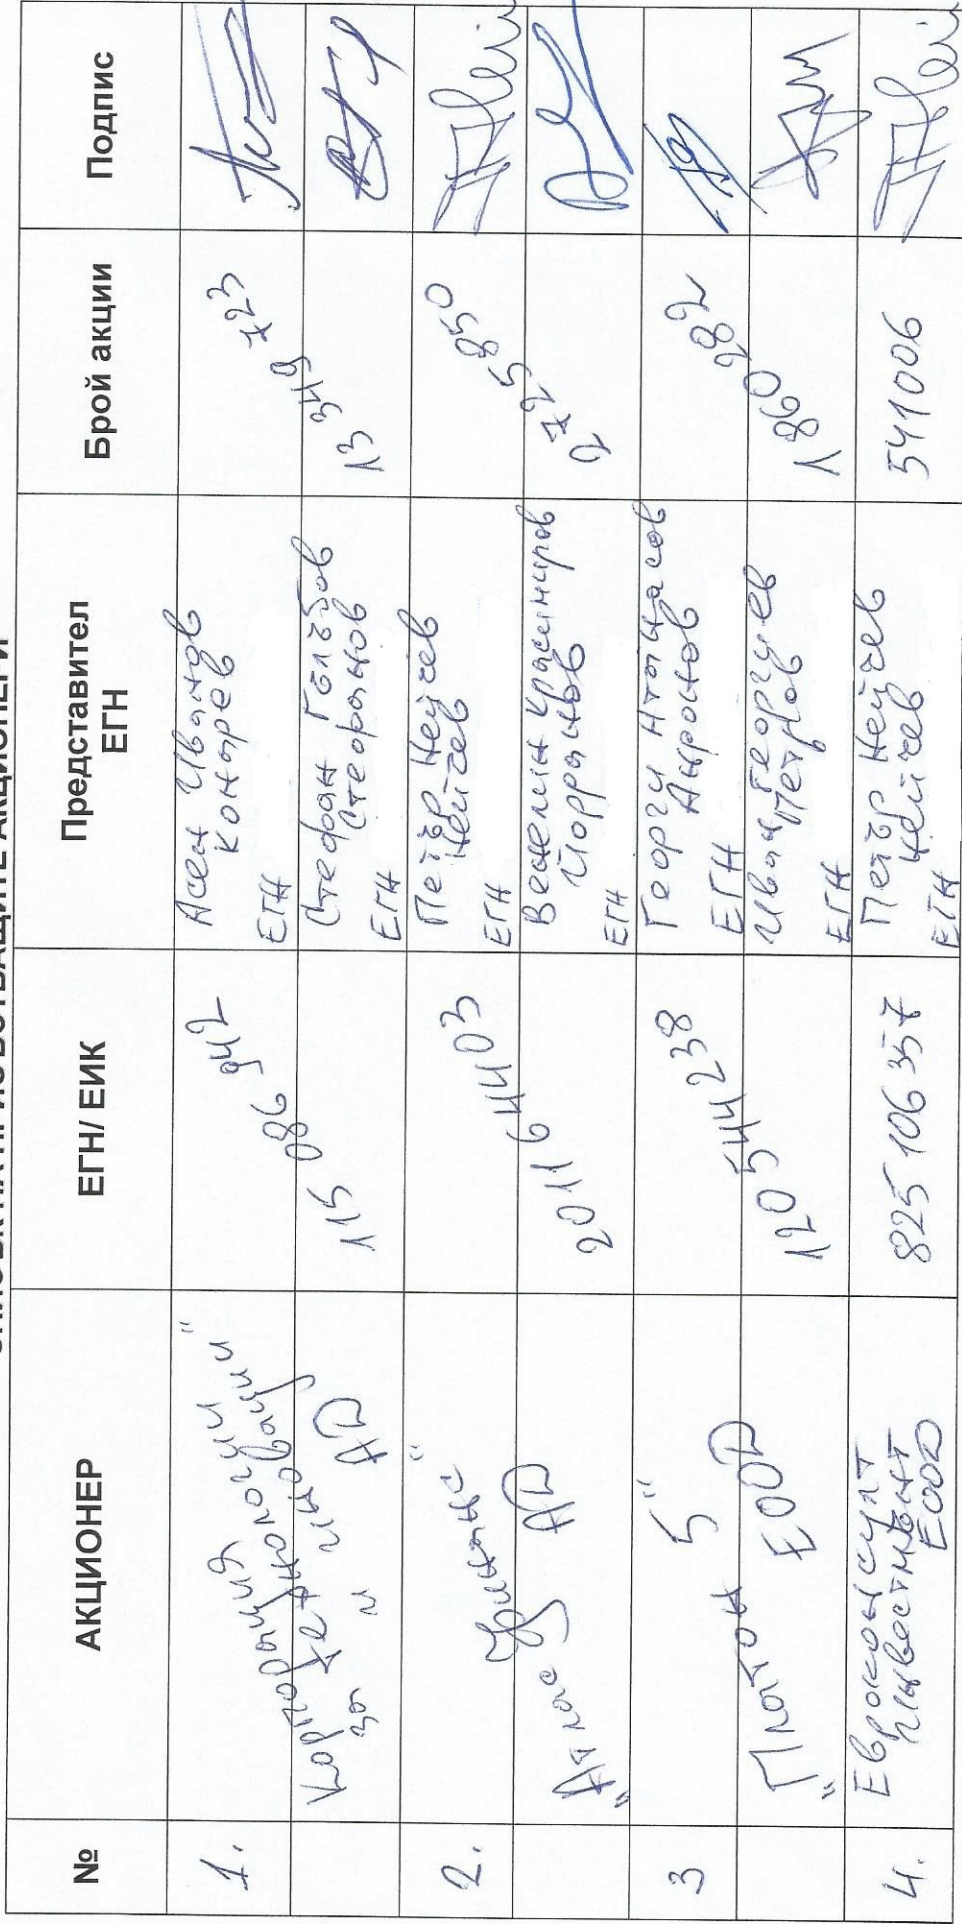 СПИСЪК НА ПРИСЪСТВАЩИТЕ АКЦИОНЕРИ
№ АКЦИОНЕР ЕГН/ ЕИК Представител ЕГН Брой акции Подпис
1. Корпорация за технологии и иновации" АД 115 086 942 Асен Иванов Конарев ЕГН 13 349 723
Стефан Гълъбов Стефанов ЕГН
2. "Алфа Финанс" АД 2011 6 4403 Петър Нейчев Нейчев ЕГН 2 725 850
Венелин Красимиров Йорданов ЕГН
3 "Платон 5" ЕООД 120 544 238 Георги Атанасов ЕГН 1 860 282
Иван Георгиев Петров ЕГН
4. Евроконсулт Инвестмънт ЕООД 825 106 357 Петър Нейчев Нейчев ЕГН 541006